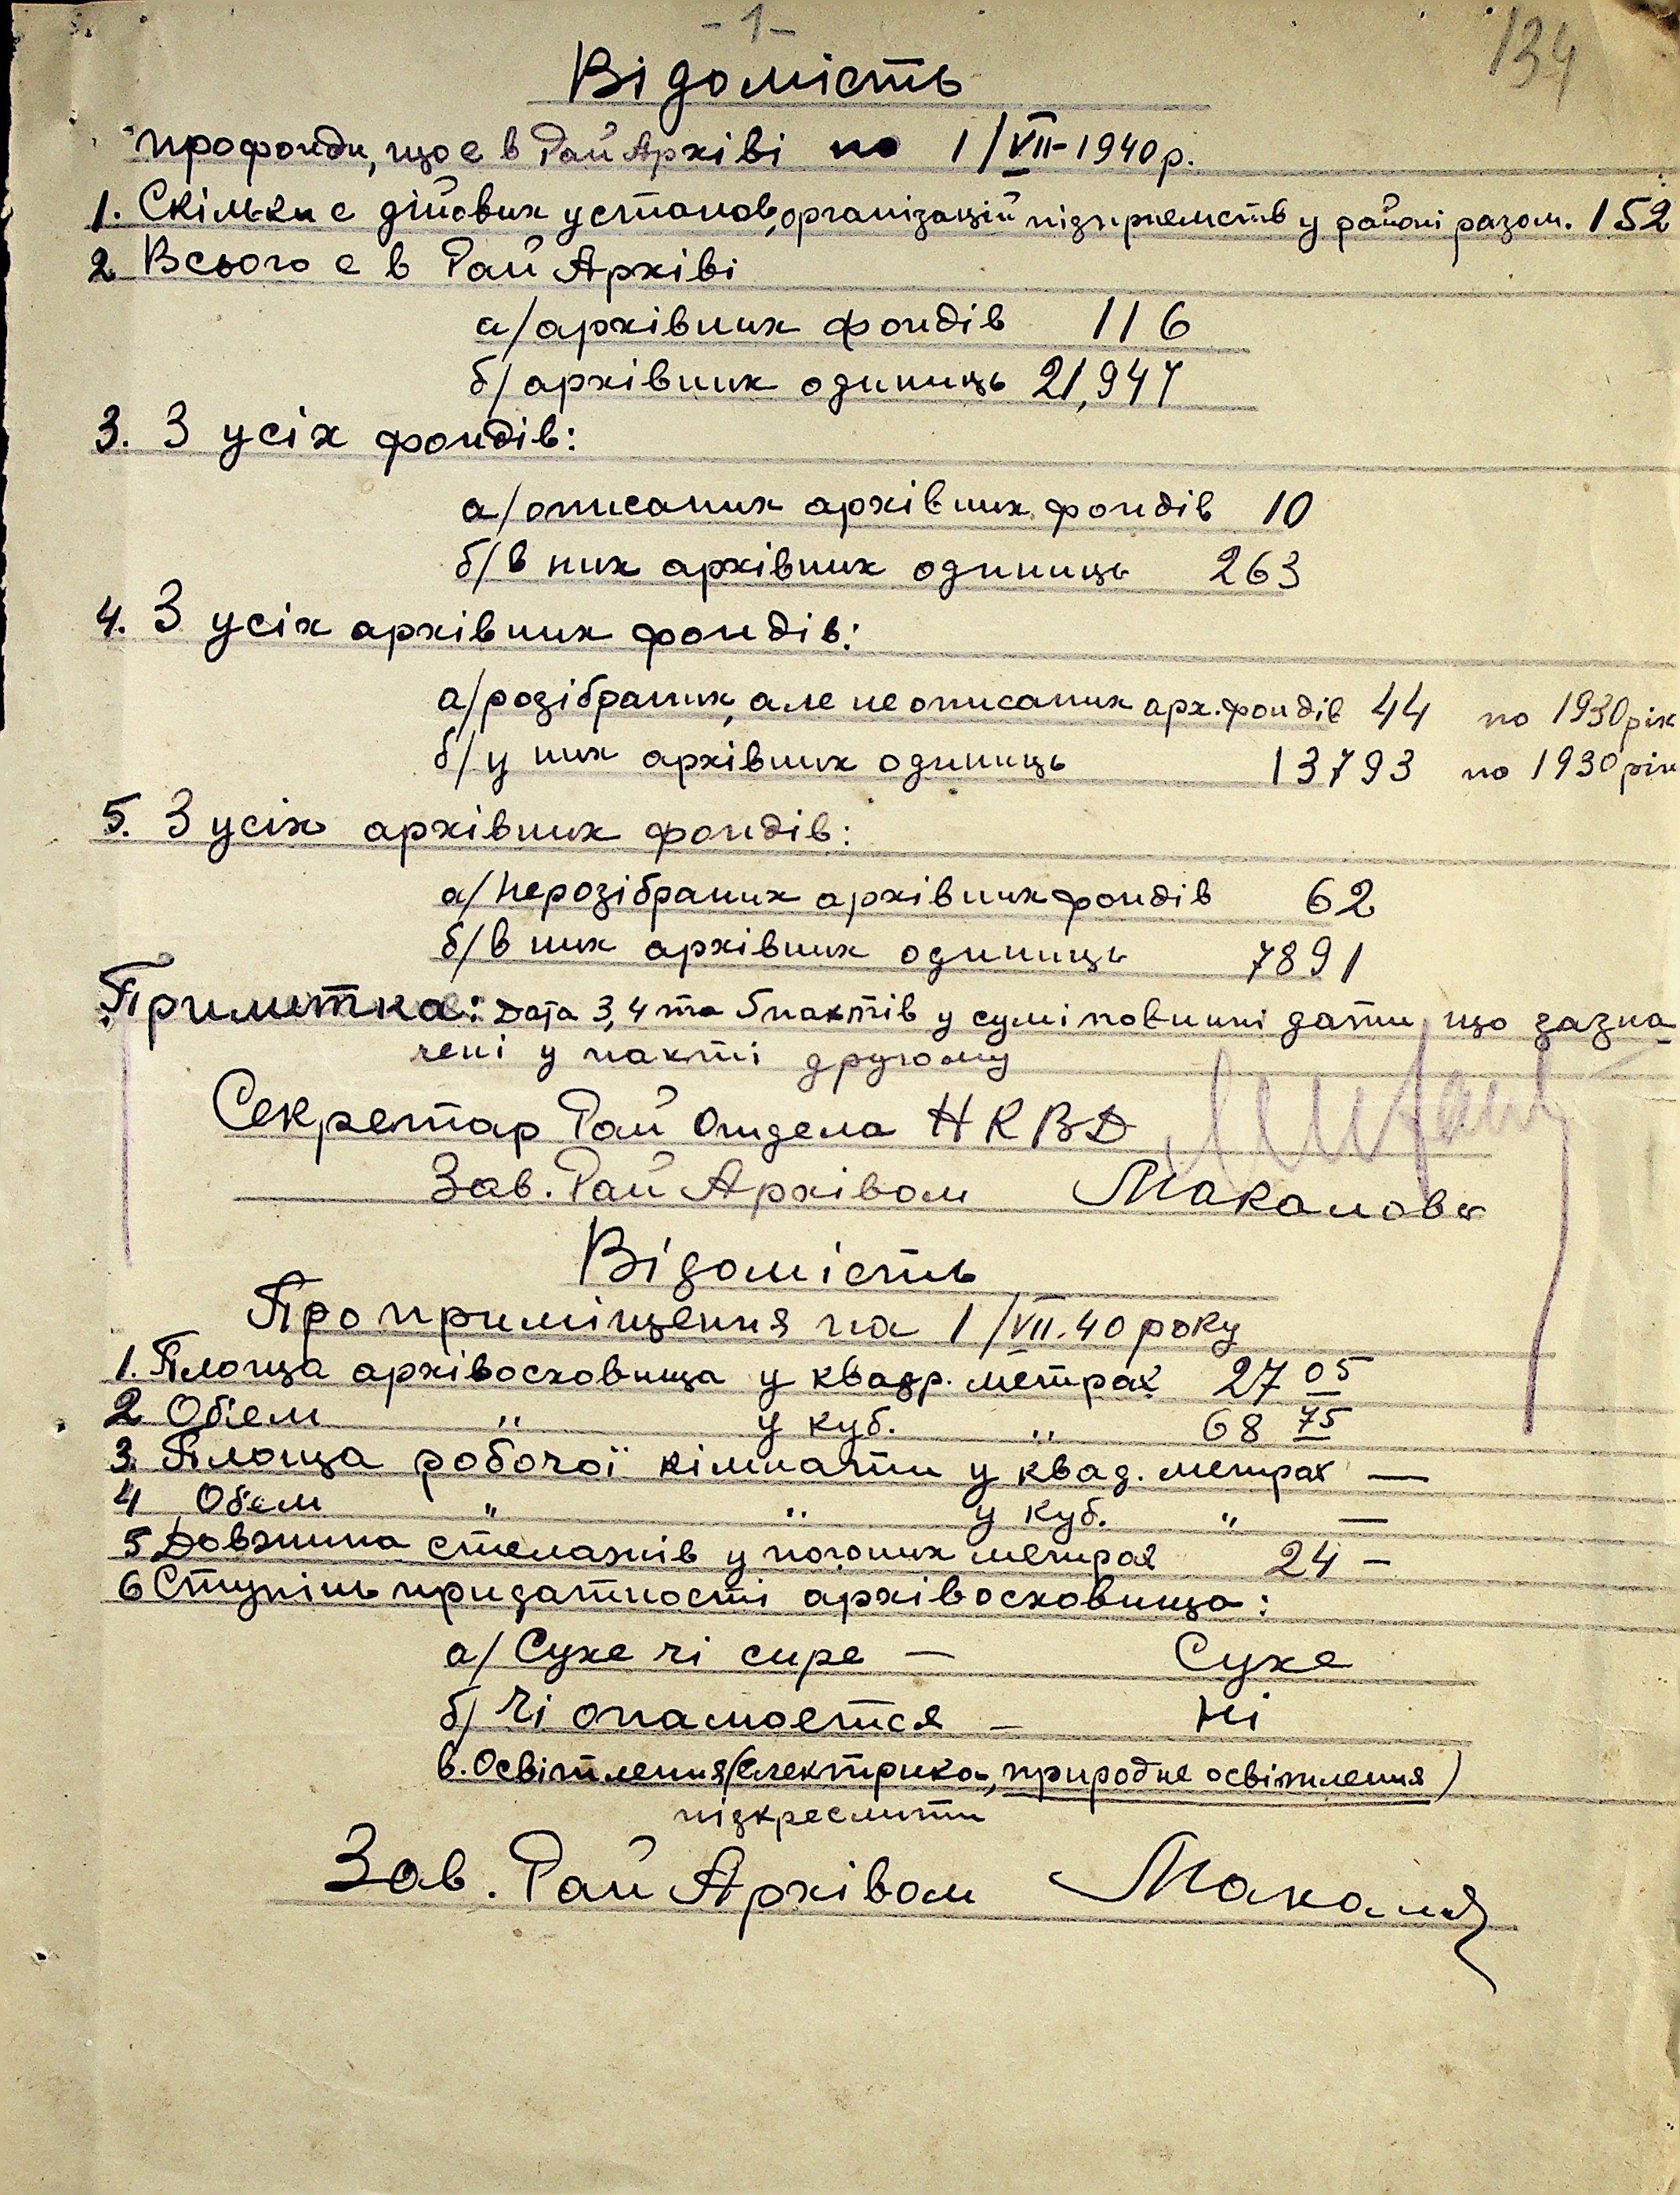 - 1 -
134
Відомість
про фонди, що є в РайАрхіві на 1/VII-1940 р.
1. Скільки є дійових установ, організацій підприємств у районі разом. 152
2 Всього є в РайАрхіві
а/ архівних фондів 116
б/ архівних одиниць 21,947
3. З усіх фондів:
а/ описаних архівних фондів 10
б/ в них архівних одиниць 263
4. З усіх архівних фондів:
а/ розібраних, але не описаних арх. фондів 44 по 1930 рік
б/ у них архівних одиниць 13793 по 1930 рік
5. З усіх архівних фондів:
а/ нерозібраних архівних фондів 62
б/ в них архівних одиниць 7891
Примітка: Дата 3,4 та 5 пактів у сумі повинні дати, що зазна-
чені у пакті другому
Секретар Рай Отдела НКВД
Зав. Рай Архівом Маканова
Відомість
Про приміщення на 1/VII.40 року
1. Площа архівосховища у квадр. метрах 27 05
2 Обєм " у куб. " 68 75
3. Площа робочої кімнати у квад. метрах —
4 Обєм " " у куб. " —
5 Довжина стелажів у погоних метрах 24 —
6 Ступінь придатності архівосховища:
а/ Сухе чі сире — Сухе
б/ Чі опалюєтся — Ні
в. Освітлення (електрика, природне освітлення)
підкреслити
Зав. Рай Архівом